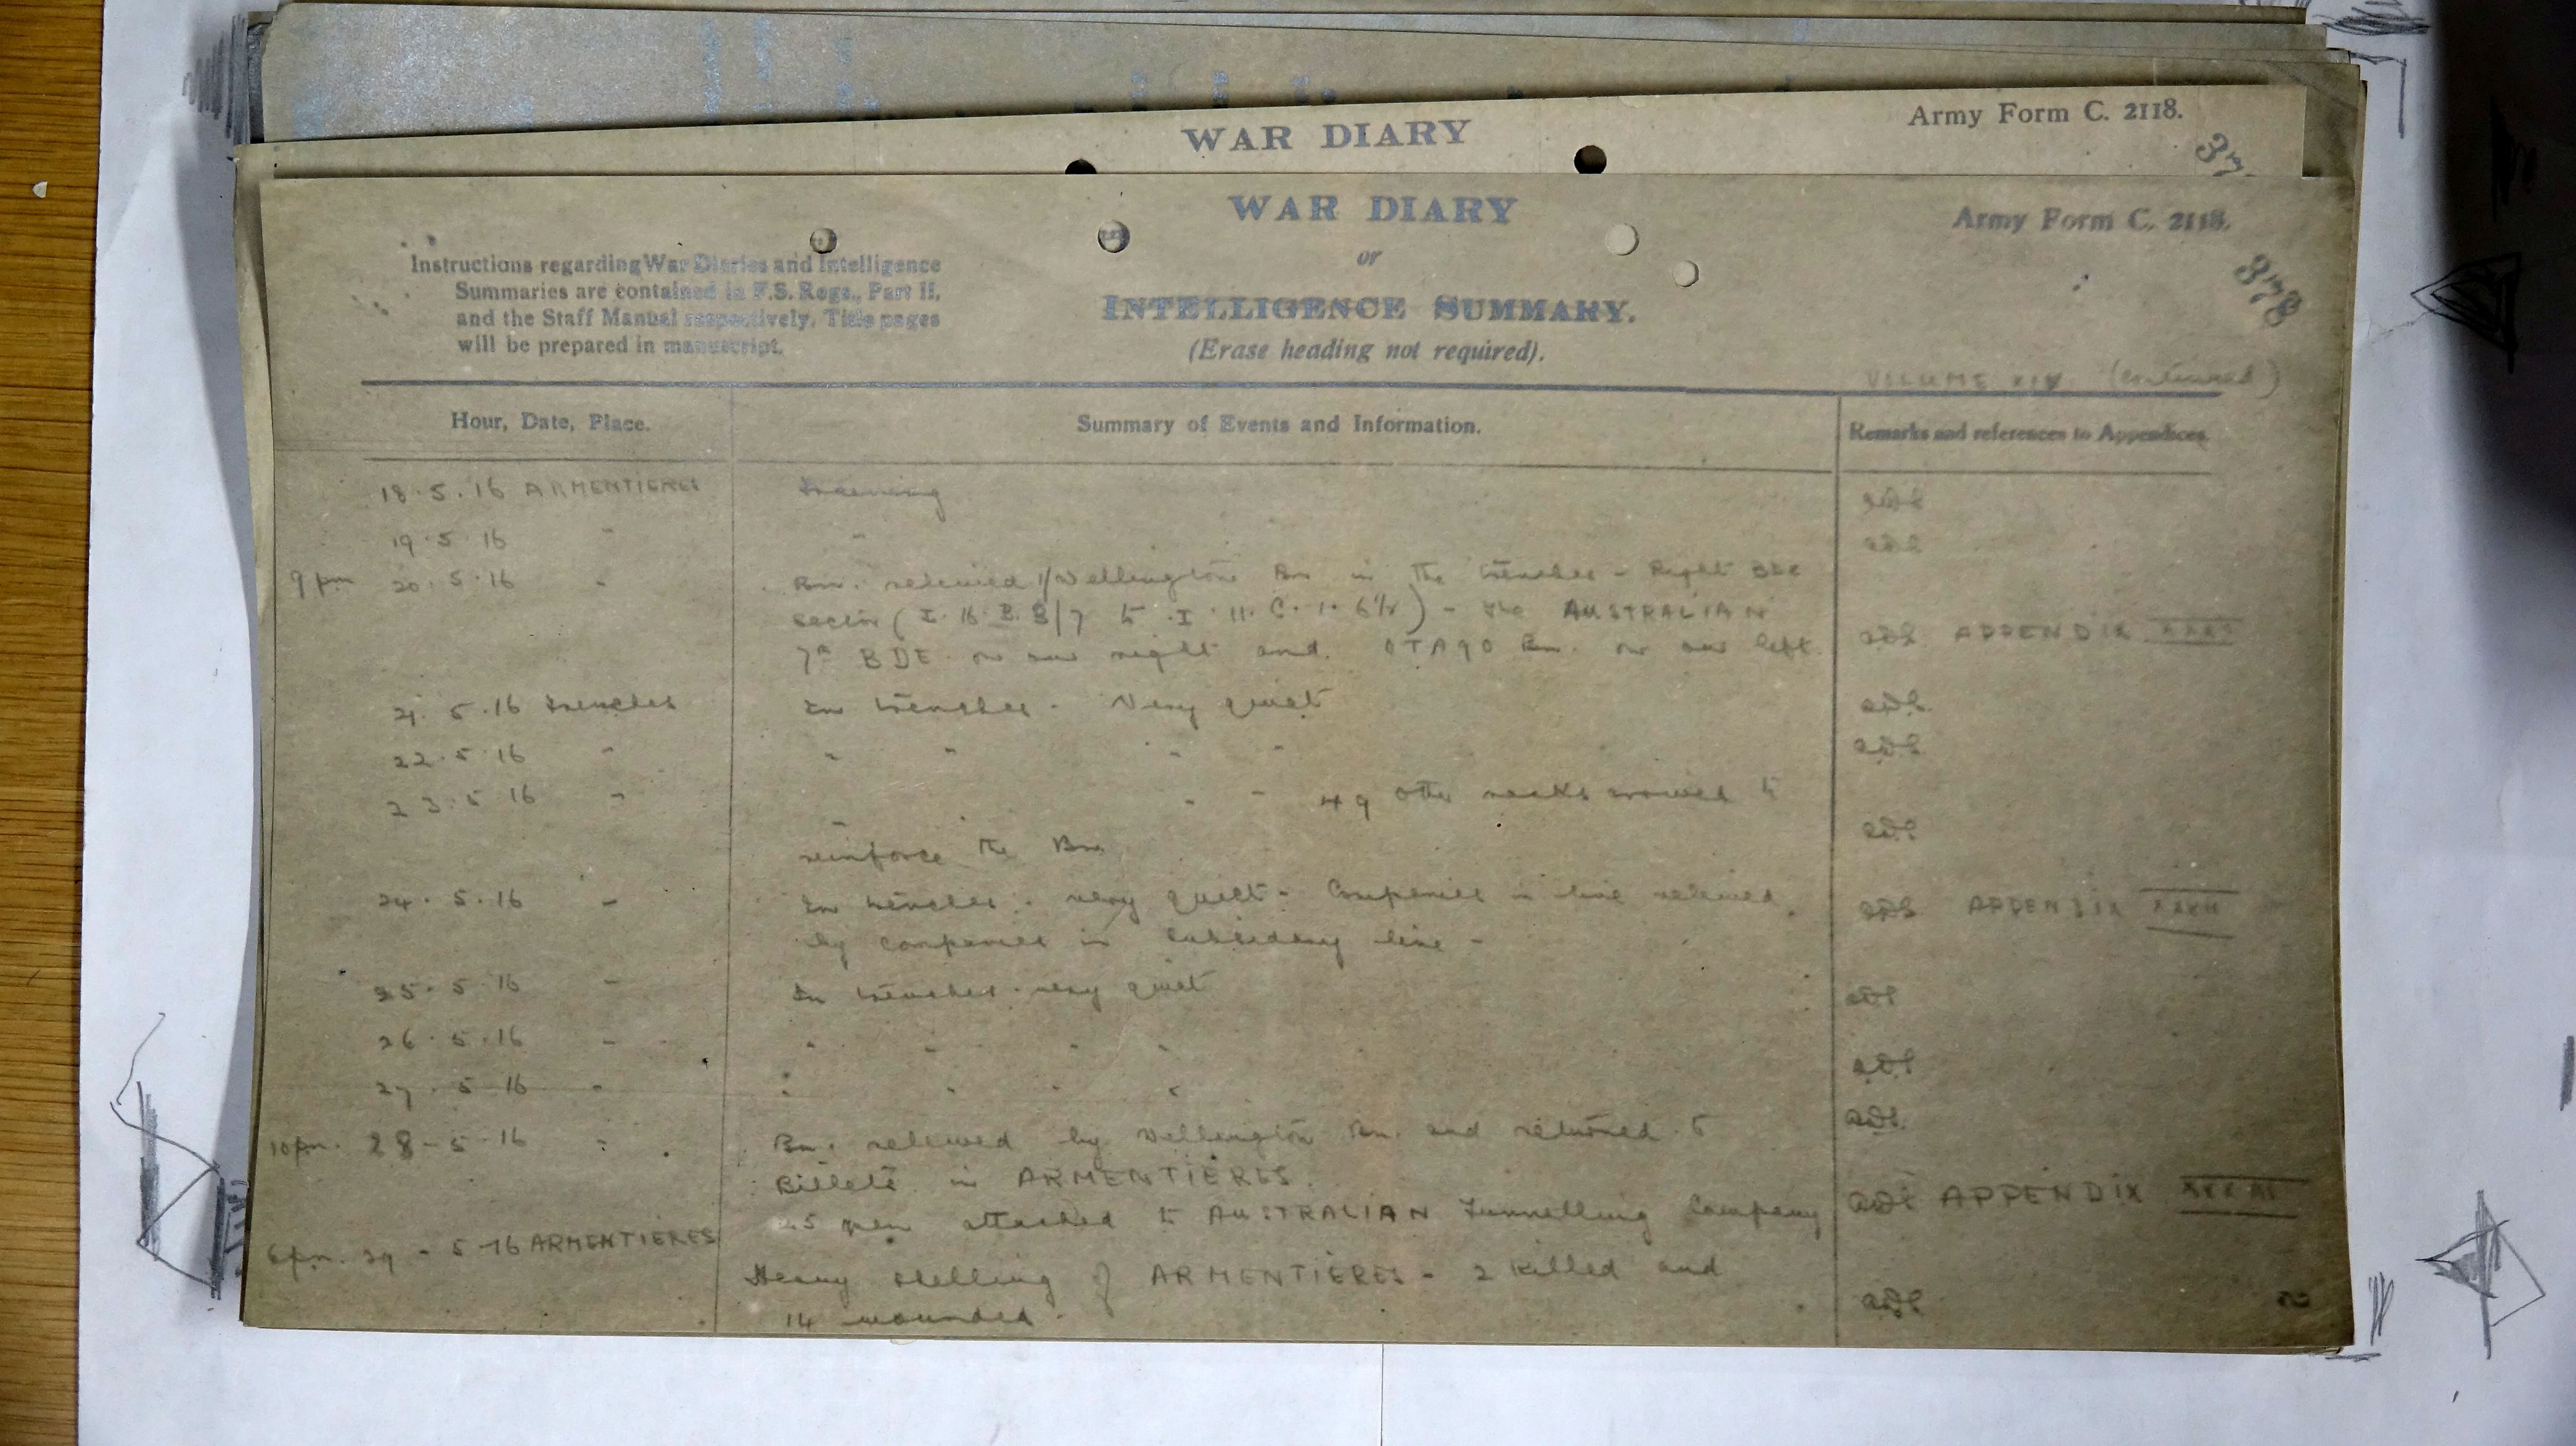 WAR DIARY
Army Form C. 2118.
37
WAR DIARY
or
INTELLIGENCE SUMMARY.
(Erase heading not required).
Army Form C. 2118.
378
Instructions regarding War Diaries and Intelligence
Summaries are contained in F.S. Regs., Part II,
and the Staff Manual respectively. Title pages
will be prepared in manuscript.
VOLUME XIV (continued)
Hour, Date, Place.
Summary of Events and Information.
Remarks and references to Appendices.
18.5.16 ARMENTIERES Training
19.5.16 " "
9 pm 20.5.16 " Bn. relieved 1/Wellington Bn in the trenches - Right BDE
Sector (I.16.B.8/7 to I.11.C.1.6½) - the AUSTRALIAN
7th BDE on our right and OTAGO Bn. on our left. APPENDIX
21.5.16 Trenches In trenches. Very quiet
22.5.16 " " " " "
23.5.16 " " " 49 other ranks arrived to
reinforce the Bn
24.5.16 " In trenches. very quiet - Companies in line relieved
by companies in subsidiary line - APPENDIX
25.5.16 " In trenches. very quiet
26.5.16 " " " " "
27.5.16 " " " " "
10pm. 28-5-16 " Bn. relieved by Wellington Bn. and returned to
Billets in ARMENTIERES. APPENDIX
25 men attached to AUSTRALIAN Tunnelling Company
6pm. 29-5-16 ARMENTIERES
Heavy shelling of ARMENTIERES - 2 killed and
14 wounded.